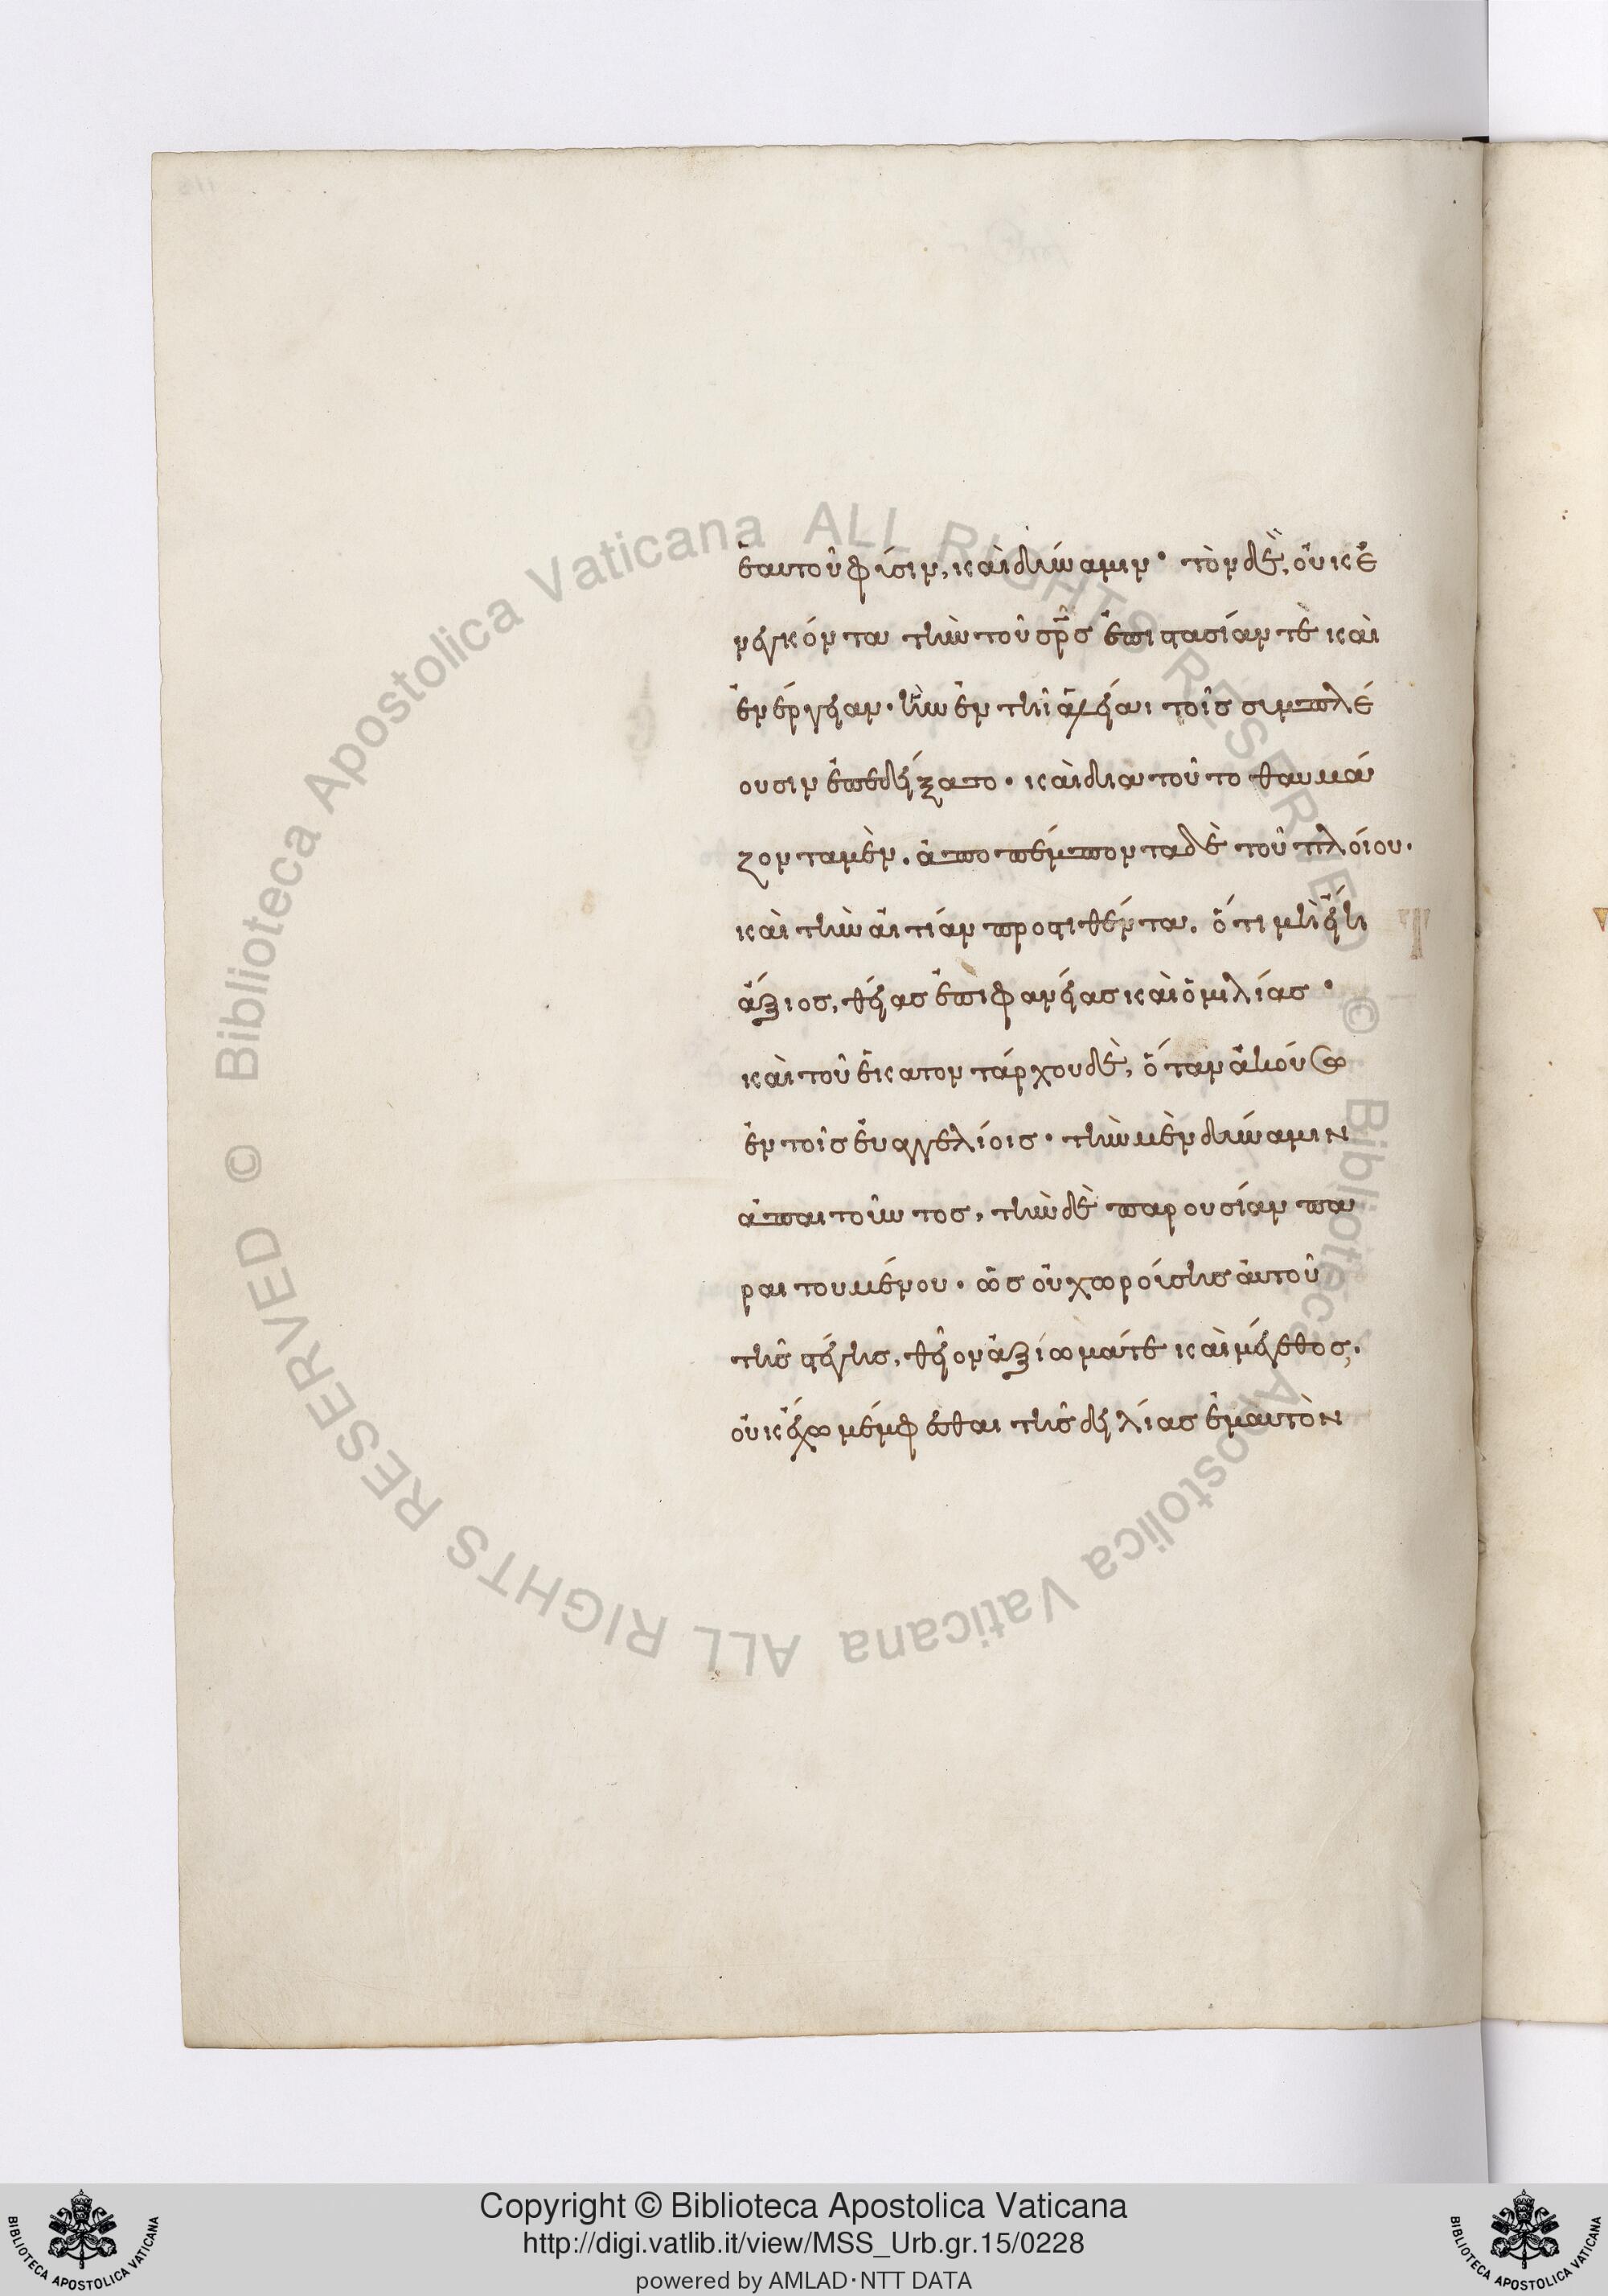 ἑαυτοῦ φύσιν, καὶ δύναμιν· τὸν δὲ, οὐκ ἐ
νεγκόντα τὴν τοῦ σρ̅ς ἐπιστασίαν τὲ καὶ
ἐνέργειαν· ἣν ἐν τῆι ἄγραι τοῖς συμπλέ
ουσιν ἐπεδείξατο· καὶ διὰ τοῦτο θαυμά
ζοντα μὲν. ἀποπέμποντα δὲ τοῦ πλοίου.
καὶ τὴν αἰτίαν προστιθέντα. ὅτι μὴ εἴη
ἄξιος, θείας ἐπιφανείας καὶ ὁμιλίας·
καὶ τοῦ ἑκατοντάρχου δὲ, ὅταν ἀκούσω
ἐν τοῖς εὐαγγελίοις· τὴν μὲν δύναμιν
ἀπαιτοῦντος, τὴν δὲ παρουσίαν πα
ραιτουμένου. ὡς οὐ χωρούσης αὐτοῦ
τῆς στέγης, θεῖον ἀξίωμά τε καὶ μέγεθος,
οὐκ ἔχω μέμφεσθαι τῆς δειλίας ἐμαυτὸν
Biblioteca Apostolica Vaticana ALL RIGHTS RESERVED ©
Biblioteca Apostolica Vaticana ALL RIGHTS RESERVED ©
Copyright © Biblioteca Apostolica Vaticana
http://digi.vatlib.it/view/MSS_Urb.gr.15/0228
powered by AMLAD·NTT DATA
BIBLIOTECA APOSTOLICA VATICANA
BIBLIOTECA APOSTOLICA VATICANA